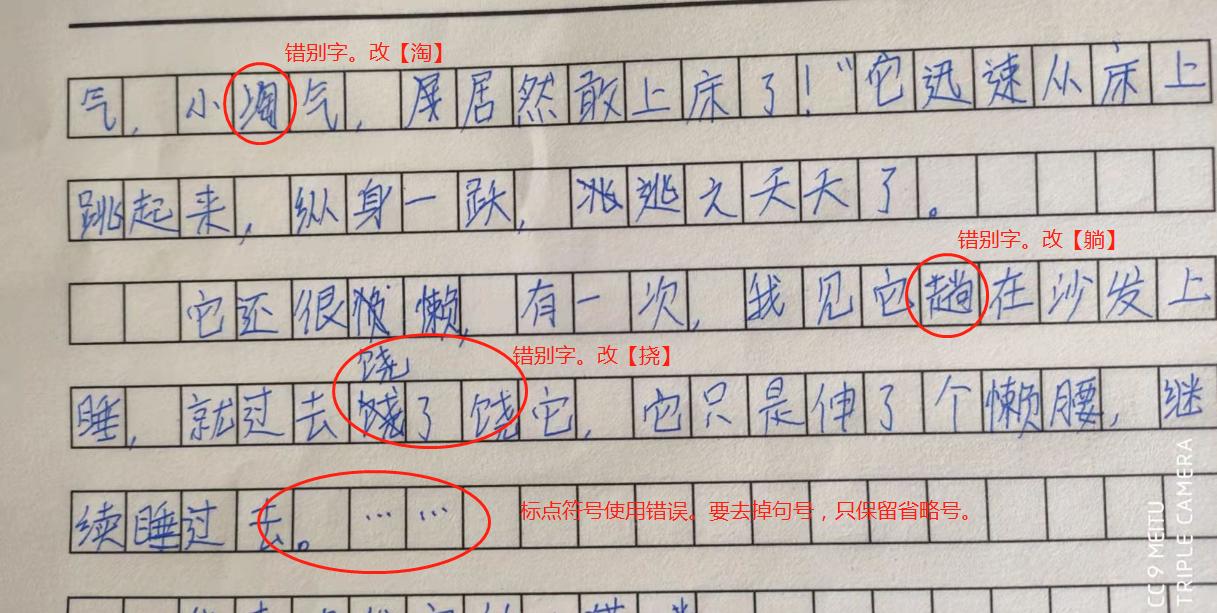 错别字。改【淘】
气,小淘气,居然敢上床了!”它迅速从床上
跳起来,纵身一跃,逃之夭夭了。
错别字。改【躺】
它还很懒,有一次,我见它趟在沙发上
饶
错别字。改【挠】
睡,就过去饶了饶它,它只是伸了个懒腰,继
续睡过去。……
标点符号使用错误。要去掉句号,只保留省略号。
CC9 MEITU
TRIPLE CAMERA